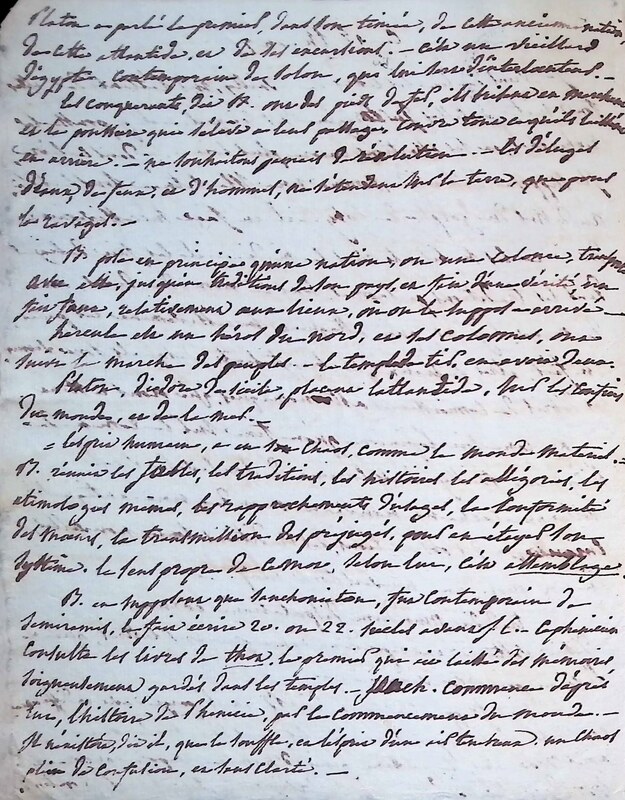 Platon a parlé le premier, dans son timée, de cette ancienne nation,
de cette atlantide, et de ses excursions. — c'est un vieillard
d'Egypte contemporain de solon, que lui sert d'interlocuteur. —
Les conquerants, dit B. ont des pieds de fer, ils brisent en marchant
et la poussiere qui s'élève a leur passage, couvre tout ce qu'ils laissent
en arriere. — ne souhaitons jamais de révolution — les déluges
d'eaux, de feux, et d'hommes, ne s'étendent sur la terre, que pour
la ravager. —
B. pose en principe qu'une nation, ou une colonie, transporte
avec elle, jusqu'aux traditions de son pays, en fait d'une vérité, un
fait faux, relativement aux lieux, ou on le suppose arrivé —
hercule est un héros du nord, et ses colomnes, ont
suivi la marche des peuples. — le temple de tir, en avoit deux.
Platon, diodore de sicile, placent l'atlantide, sur les confins
du monde, et de la mer. —
= l'esprit humain, a eu son chaos, comme le monde materiel. =
B. réunit les fables, les traditions, les histoires les allégories, les
etimologies mêmes, les rapprochements d'usages, la conformité
des mœurs, la transmission des préjugés, pour en étayer son
systême. le sens propre de cosmos, selon lui, c'est assemblage.
B. en supposant que sanchoniaton, fut contemporain de
semiramis, le fait ecrire 20. ou 22. siècles avant J. C. — ce phénicien
consulta les livres de thot, le premier qui ait laissé des mémoires
soigneusement gardés dans les temples. — sanch. commence d'après
lui, l'histoire de Phénicie, par le commencement du monde. —
Il n'existoit, dit-il, que le souffle, et l'esprit d'un air ténébreux un chaos
plein de confusion, et sans clarté. —